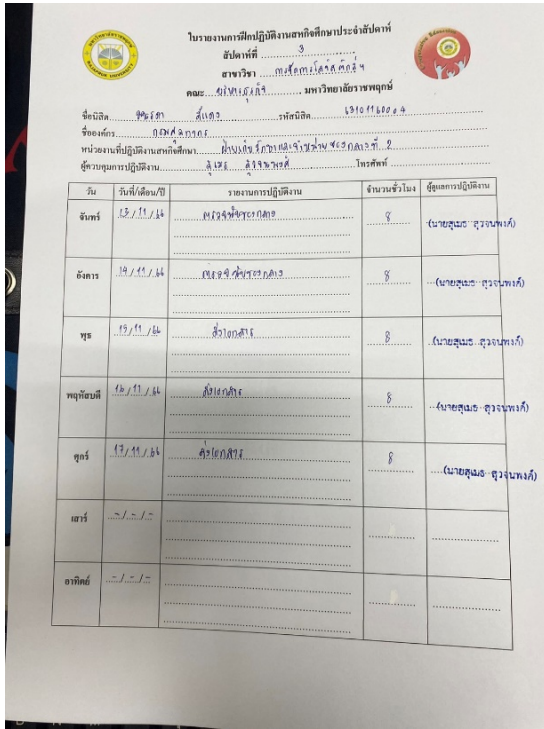 ใบรายงานการฝึกปฏิบัติงานสหกิจศึกษาประจำสัปดาห์
สัปดาห์ที่ 3
สาขาวิชา การจัดการโลจิสติกส์ฯ
คณะ บริหารธุรกิจ มหาวิทยาลัยราชพฤกษ์
ชื่อนิสิต รหัสนิสิต 63101160004
ชื่อองค์กร กรมศุลกากร
หน่วยงานที่ปฏิบัติงานสหกิจศึกษา ฝ่ายเก็บรักษาและจำหน่ายของกลางที่ 2
ผู้ควบคุมการปฏิบัติงาน สุเมธ สุวจนพงศ์ โทรศัพท์
วัน วันที่/เดือน/ปี รายงานการปฏิบัติงาน จำนวนชั่วโมง ผู้ดูแลการปฏิบัติงาน
จันทร์ 13/11/66 ตรวจนับของกลาง 8 (นายสุเมธ สุวจนพงศ์)
อังคาร 14/11/66 ตรวจนับของกลาง 8 (นายสุเมธ สุวจนพงศ์)
พุธ 15/11/66 ส่งเอกสาร 8 (นายสุเมธ สุวจนพงศ์)
พฤหัสบดี 16/11/66 ส่งเอกสาร 8 (นายสุเมธ สุวจนพงศ์)
ศุกร์ 17/11/66 ส่งเอกสาร 8 (นายสุเมธ สุวจนพงศ์)
เสาร์ -/-/-
อาทิตย์ -/-/-